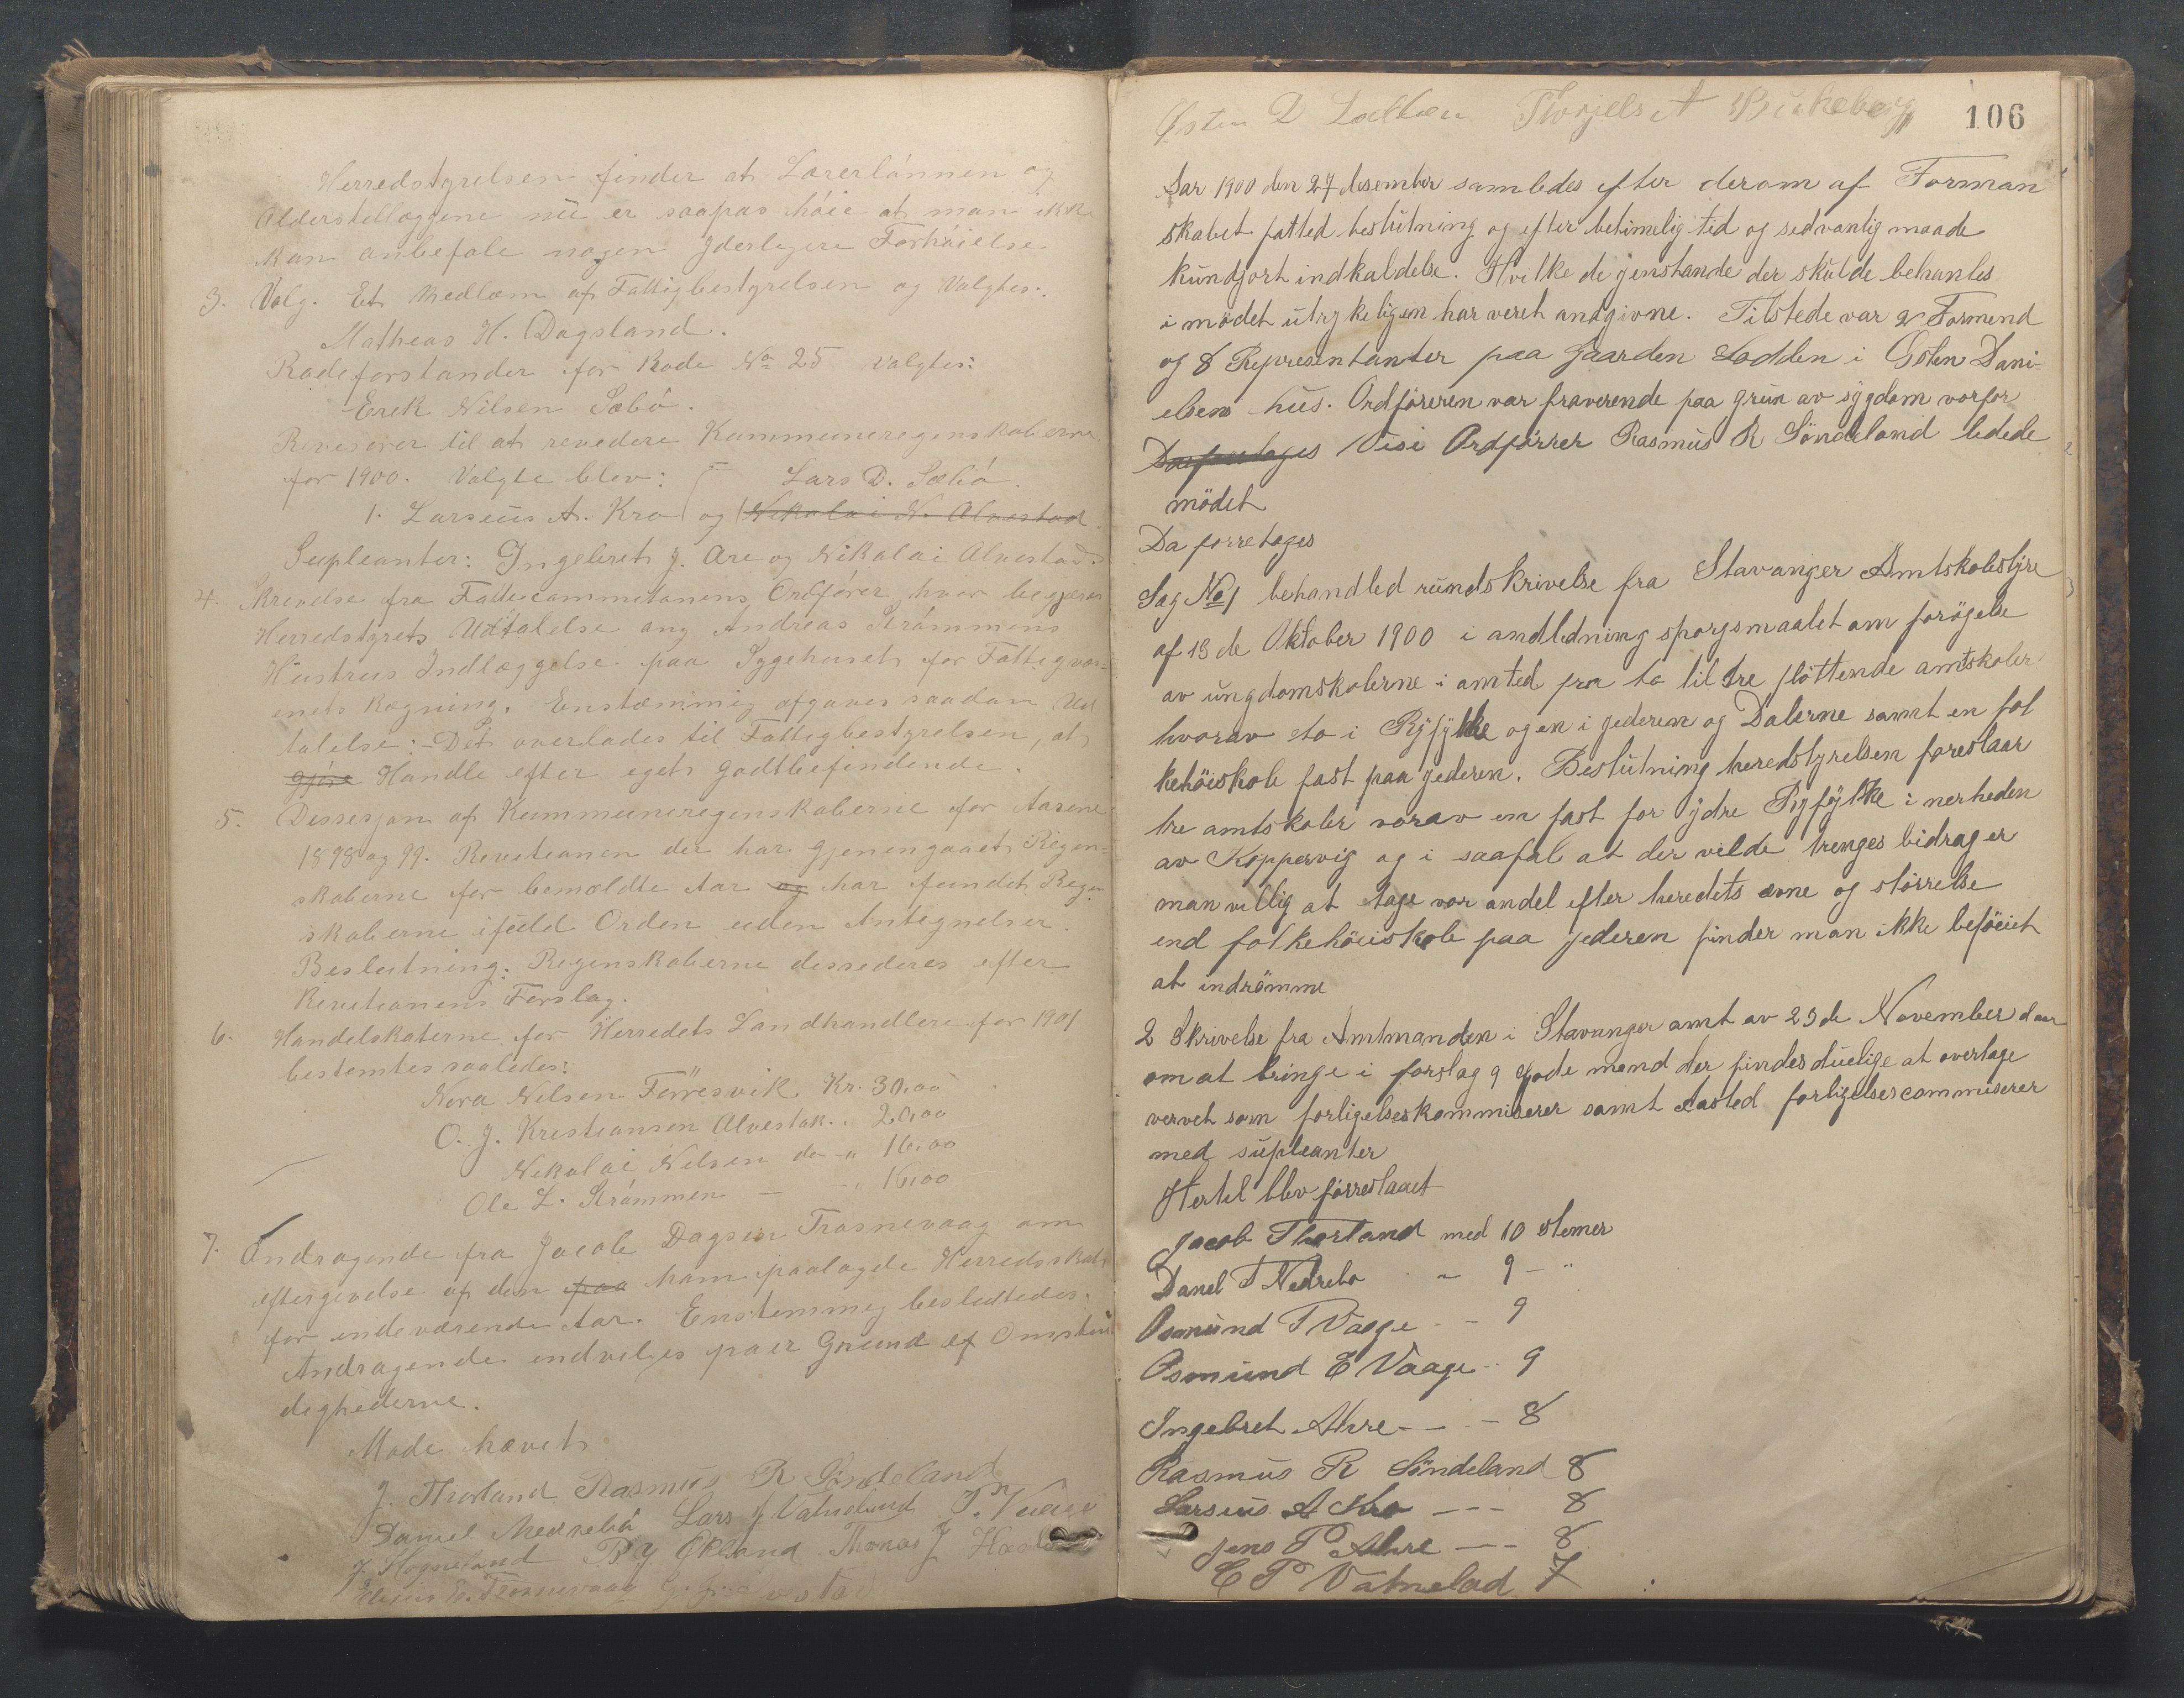 Herredstyrelsen finder at Lærerlønnen og
Alderstillæggene nu er saapas høie at man ikke
kan anbefale nogen yderligere Forhøielse.
3. Valg. Et Medlem af Fattigbestyrelsen og Valgtes:
Matheas H. Dagsland.
Rodeforstander for Rode No 25 valgtes:
Erik Nilsen Sæbø.
Revisorer til at revedere Kommuneregnskaberne
for 1900. Valgte blev: Lars D. Sæbø.
1. Larseus A. Kro og Nikolai N. Alvestad
Supleanter: Ingebret J. Are og Nikolai Alvestad.
4. Skrivelse fra Fattecommisionens Ordfører, hvor begjæres
Herredstyrets Udtalelse ang Andreas Strømmens
Hustrus Indlæggelse paa Sygehuset for Fattigvæs-
enets Regning. Enstemmig afgaves saadan Ud
talelse: - Det overlades til Fattigbestyrelsen, at
gjøre Handle efter eget Godtbefindende.
5. Dessesjon af Kommuneregnskaberne for Aarene
1898 og 99. Revisionen der har gjennengaaet Regen-
skaberne for bemældte Aar og har fundet Regn
skaberne ifuld Orden uden Antegnelser.
Beslutning: Regnskaberne dessederes efter
Revisionens Forslag.
6. Handelskaterne for Herredets Landhandlere for 1901
bestemtes saaledes:
Nora Nilsen Førresvik Kr. 30,00
O. J. Kristiansen Alvestak.. 20,00
Nikolai Nelsen do " 16,00
Ole L. Strømmen — " 16,00
7. Andragende fra Jacob Dagsen Trosnevaag om
eftergivelse af den paa ham paalagde Herredsskat
for indeværende Aar. Enstemmig besluttedes:
Andragende indvelges paa Grund af Omstæn
deghederne.
Møde hævet
J. Thorland Rasmus R Søndeland
Daniel Nedrebø Lars J Vatnelund T. Vaage
J. Hogneland B Y Økland Thomas J
Elusius E. Trosnevaag
Østen D Lodden Thorjels A Birkeberg
106
Aar 1900 den 27 desember samledes efter derom af Forman
skabet fatted beslutning og efter betimelig tid og sedvanlig maade
kundgjort indkaldelse. Hvilke de jenstande der skulde behanles
i mödet utrykeligen har veret andgivne. Tilstede var 2 Formend
og 8 Representanter paa Gaarden Lodden i Östen Dani-
elsens hus. Ordföreren var fraverende paa grun av sygdom vorfor
Daforetages Visi Ordförrer Rasmus R Söndeland ledede
mödet
Da forretages
Sag No 1 behandled rundskrivelse fra Stavanger Amtskolestyre
af 13 de Oktober 1900 i andledning sporgsmaalet om forögelse
av ungdomskolerne i amted fra to til tre flöttende amtskoler
hvorav to i Ryfylke og en i jederen og Dalerne samt en fol
kehöiskole fast paa jederen. Beslutning heredstyrelsen foreslaar
tre amtskoler vorav en fast for ydre Ryfylke i nerheden
av Koppervig og i saafal at der vilde trenges bidrag er
man villig at tage vor andel efter heredets evne og störrelse
end folkehöiskole paa jederen finder man ikke beföiet
at indrömme
2 Skrivelse fra Amtmanden i Stavanger amt av 23 de November d aar
om at bringe i forslag 9 gode mend der findes duelige at overtage
vervet som forligelseskommiserer samt Aasted forligelsescommiserer
med supleanter
Hertil blev förreslaaet
Jacob Thorland med 10 stemer
Danel T Nedrebo " 9 — "
Osmund T Vaage - - 9
Osmund E Vaage .. 9
Ingebret Ahre — - - 8
Rasmus R Söndeland 8
Larseus A Kro --- 8
Jens P Ahre --- 8
E P Vatnelad 7